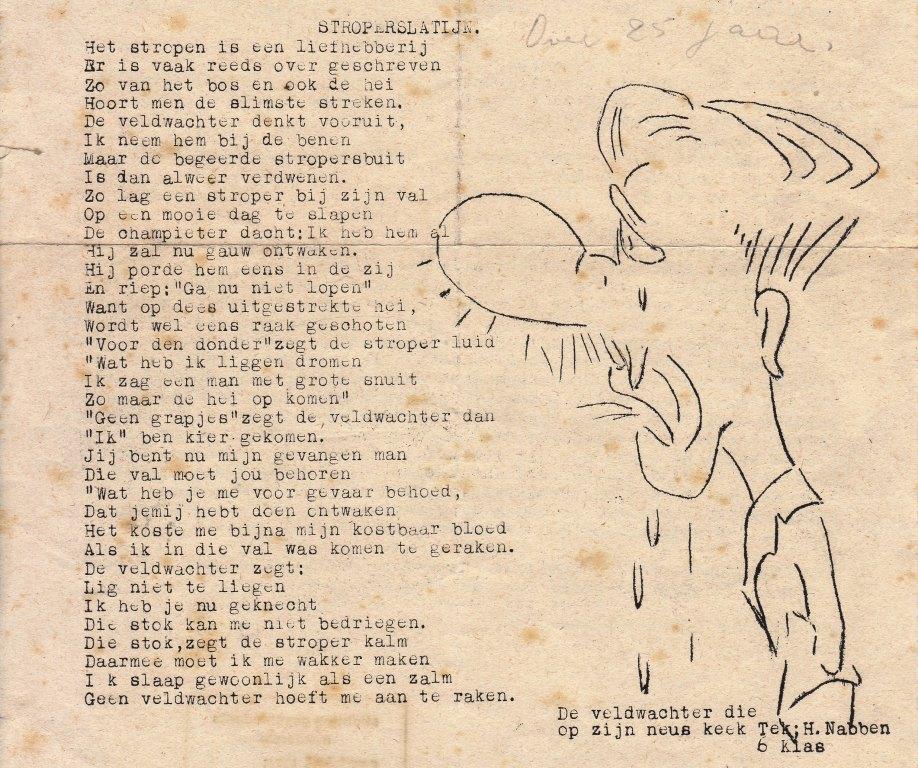 STROPERSLATIJN.
Over 25 jaar.
Het stropen is een liefhebberij
Er is vaak reeds over geschreven
Zo van het bos en ook de hei
Hoort men de slimste streken.
De veldwachter denkt vooruit,
Ik neem hem bij de benen
Maar de begeerde stropersbuit
Is dan alweer verdwenen.
Zo lag een stroper bij zijn val
Op een mooie dag te slapen
De champieter dacht:Ik heb hem al
Hij zal nu gauw ontwaken.
Hij porde hem eens in de zij
En riep:"Ga nu niet lopen"
Want op dees uitgestrekte hei,
Wordt wel eens raak geschoten
"Voor den donder"zegt de stroper luid
"Wat heb ik liggen dromen
Ik zag een man met grote snuit
Zo maar de hei op komen"
"Geen grapjes"zegt de veldwachter dan
"IK" ben kier gekomen.
Jij bent nu mijn gevangen man
Die val moet jou behoren
"Wat heb je me voor gevaar behoed,
Dat jemij hebt doen ontwaken
Het koste me bijna mijn kostbaar bloed
Als ik in die val was komen te geraken.
De veldwachter zegt:
Lig niet te liegen
Ik heb je nu geknecht
Die stok kan me niet bedriegen.
Die stok,zegt de stroper kalm
Daarmee moet ik me wakker maken
I k slaap gewoonlijk als een zalm
Geen veldwachter hoeft me aan te raken.
De veldwachter die
op zijn neus keek Tek;H.Nabben
6 klas